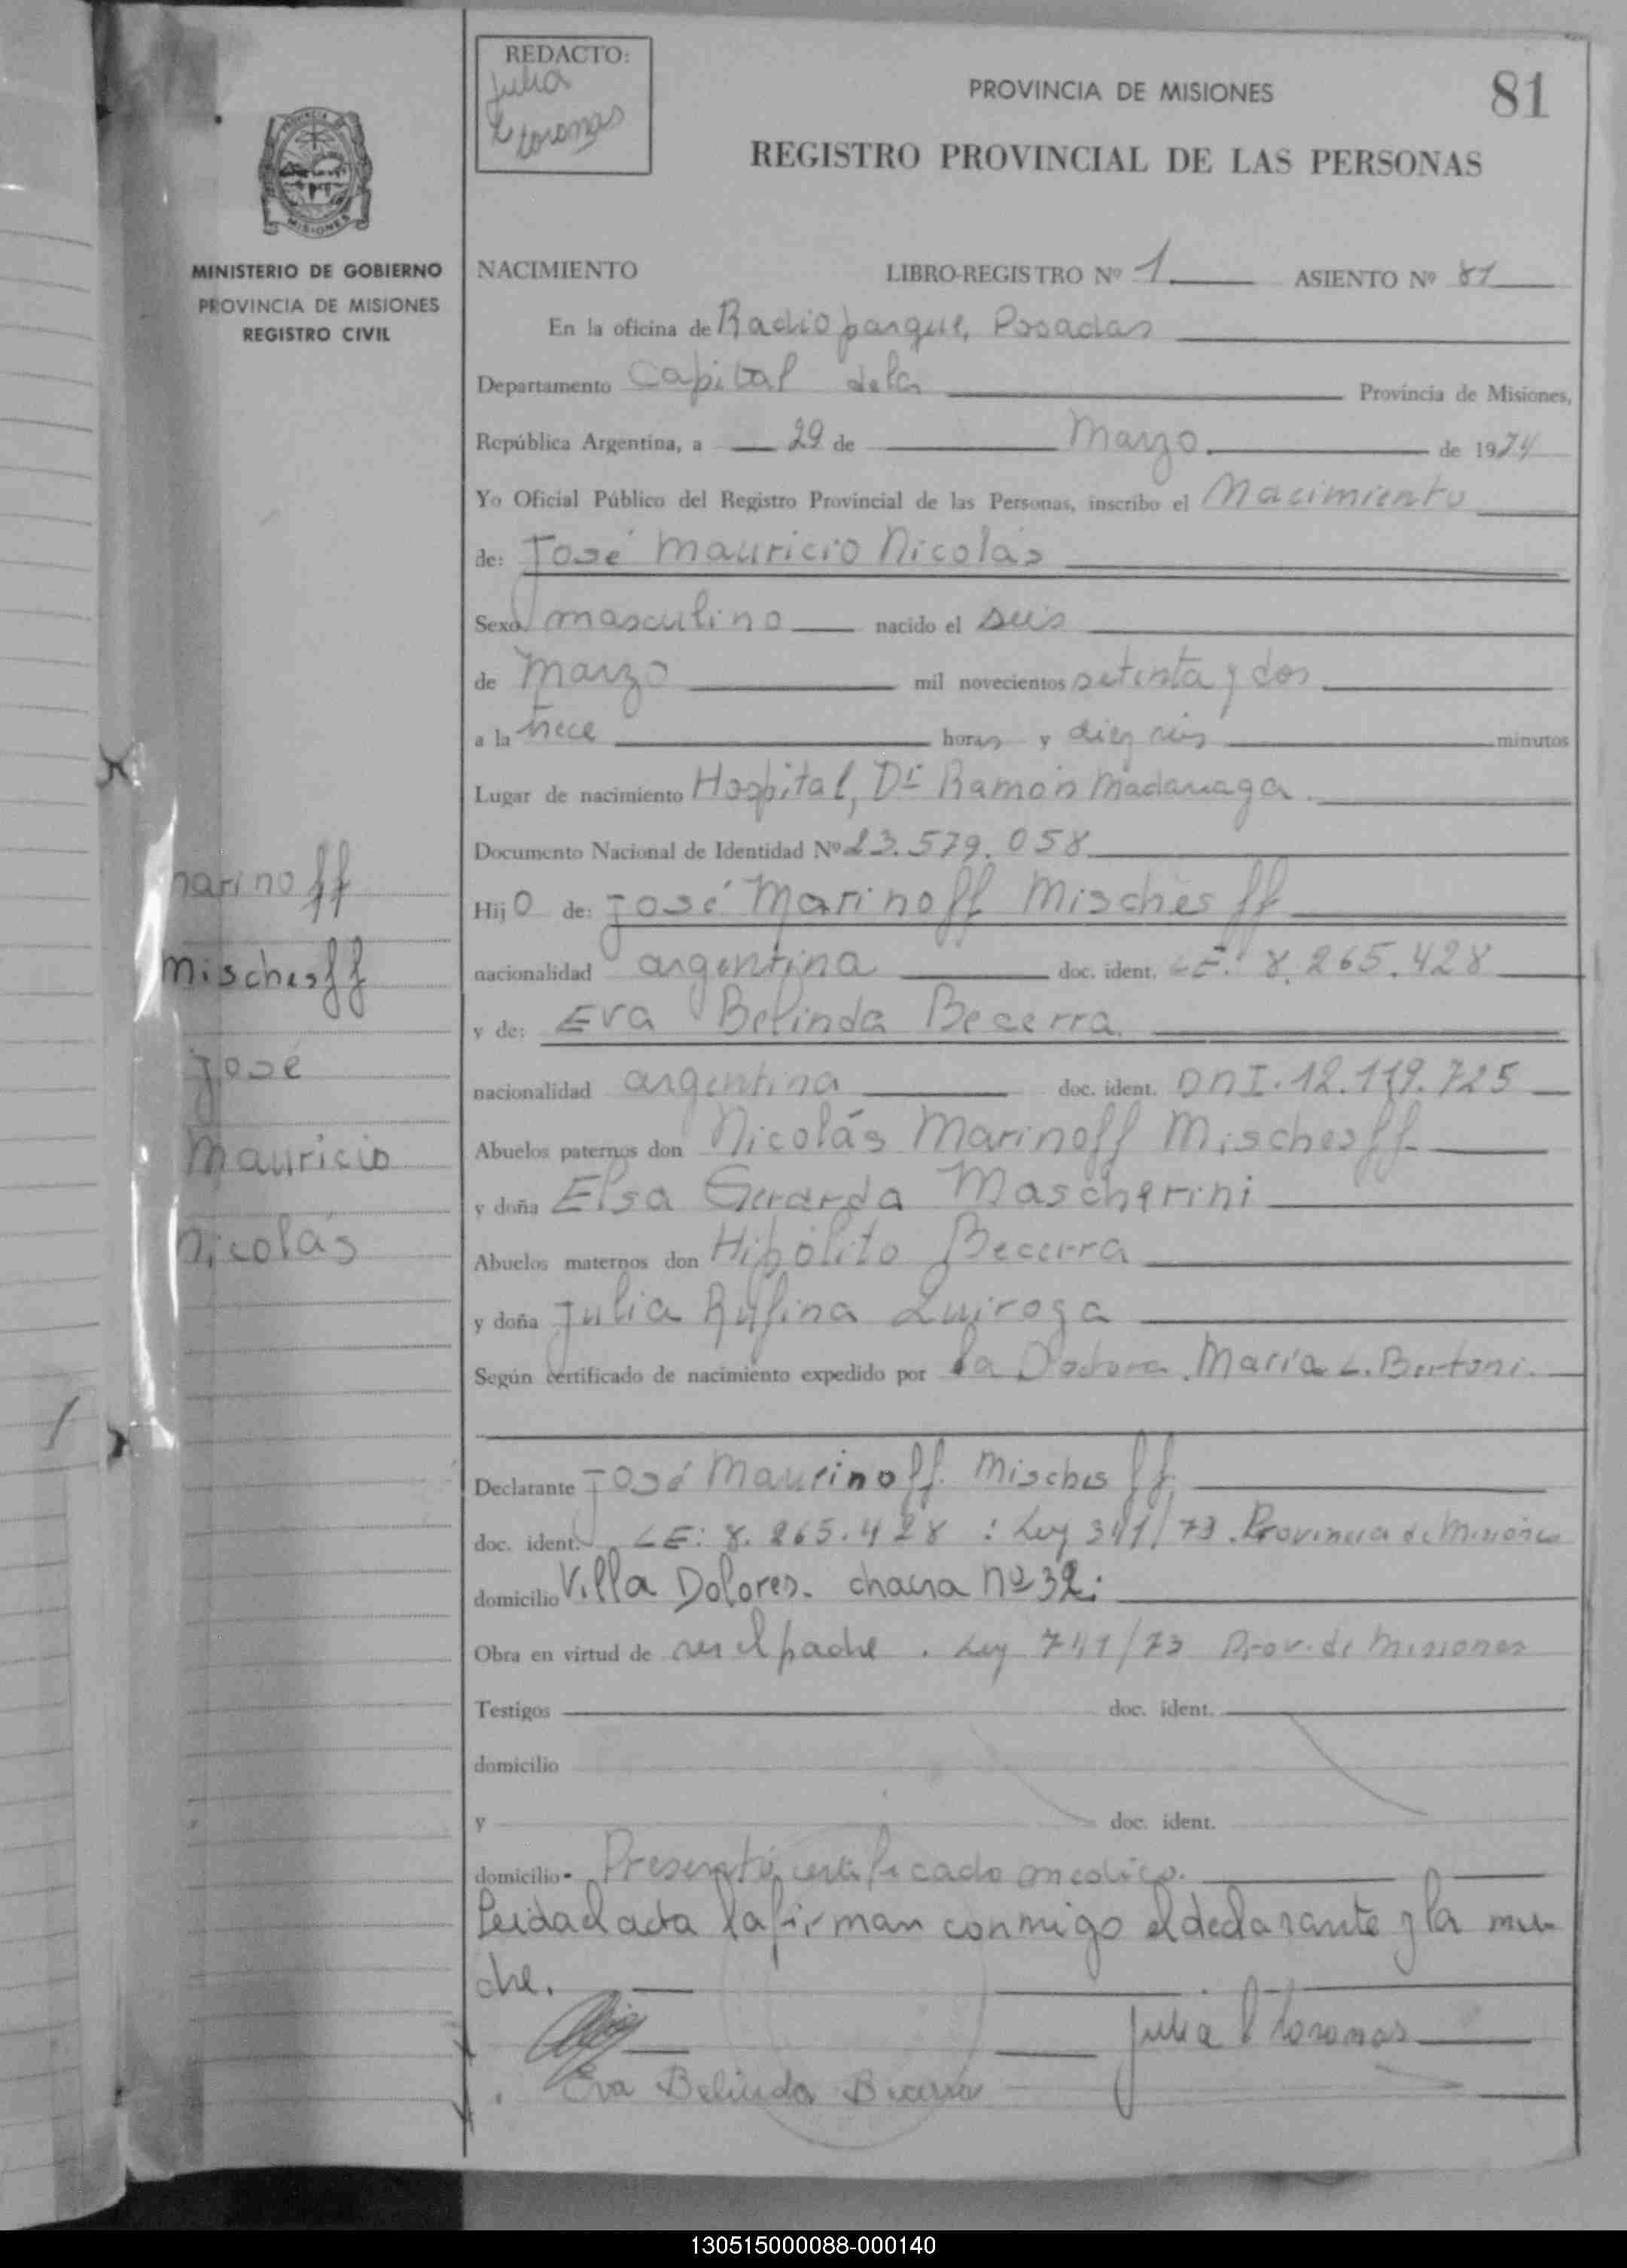 REDACTO:
Julia
L coronas
PROVINCIA DE MISIONES
81
REGISTRO PROVINCIAL DE LAS PERSONAS
PROVINCIA DE
MISIONES
MINISTERIO DE GOBIERNO
PROVINCIA DE MISIONES
REGISTRO CIVIL
NACIMIENTO LIBRO-REGISTRO Nº 1 ASIENTO Nº 81
En la oficina de Radio parque, Posadas
Departamento Capital dela Provincia de Misiones,
República Argentina, a 29 de Marzo de 1974
Yo Oficial Público del Registro Provincial de las Personas, inscribo el Nacimiento
de: José Mauricio Nicolás
Sexo masculino nacido el seis
de Marzo mil novecientos setenta y dos
a la trece horas y diez seis minutos
Lugar de nacimiento Hospital, Dr Ramón Madariaga.
Documento Nacional de Identidad Nº 23.579.058
Hijo de: José Marinoff Mischesff
nacionalidad argentina doc. ident. LE: 8.265.428
y de: Eva Belinda Becerra.
nacionalidad argentina doc. ident. DNI. 12.119.725
Abuelos paternos don Nicolás Marinoff Mischesff
y doña Elsa Gerarda Mascherini
Abuelos maternos don Hipólito Becerra
y doña Julia Rufina Quiroga
Según certificado de nacimiento expedido por la Doctora. María L. Bertoni.
Declarante José Maurinoff. Mischesff.
doc. ident. LE: 8.265.428 : Ley 341/73. Provincia de Misiones
domicilio Villa Dolores. chacra nº 32.
Obra en virtud de ser el padre. Ley 741/73 Prov. de Misiones
Testigos doc. ident.
domicilio
y doc. ident.
domicilio Presentó certificado medico.
Leida el acta la firman conmigo el declarante y la ma-
dre.
Julia L coronas
Eva Belinda Becerra
marinoff
Mischesff
José
Mauricio
Nicolás
130515000088-000140